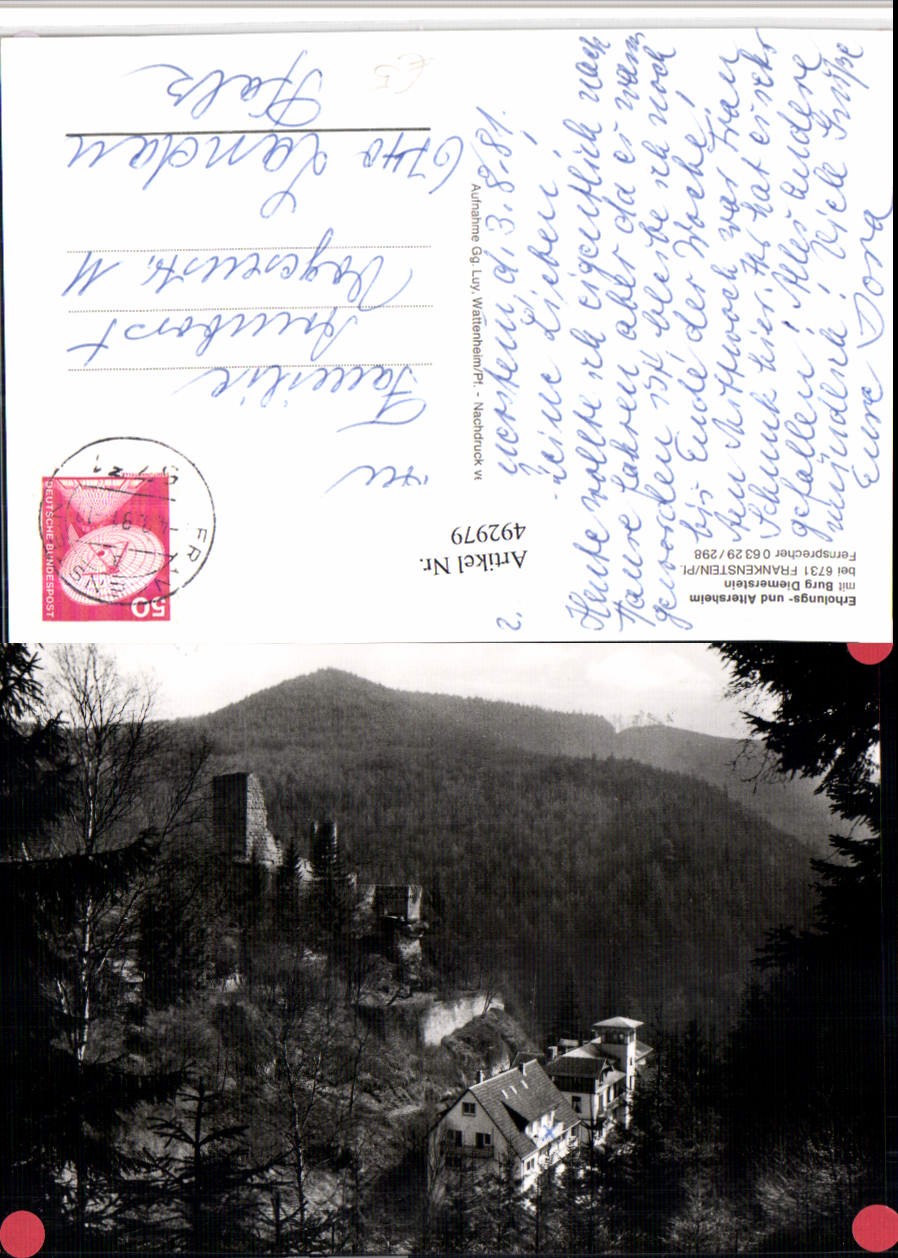 Erholungs- und Altersheim
mit Burg Diemerstein
bei 6731 FRANKENSTEIN/Pf.
Fernsprecher 0 63 29 / 298
Artikel Nr.
492979
2.
d. 3.8.81.
Meine Lieben!
Heute wollte ich eigentlich nach
Hause fahren aber da es warm
geworden ist bleibe ich noch
bis Ende der Woche!
Am Mittwoch war Frau
Schunk hier, ihr hat es sehr
gefallen! Alles andere
mündlich! Viele Grüße
Eure Dora
Aufnahme Gg. Luy, Wattenheim/Pf. - Nachdruck ve
DEUTSCHE BUNDESPOST
50
FRANKENS
An
Familie
6740 Landau
Pfalz